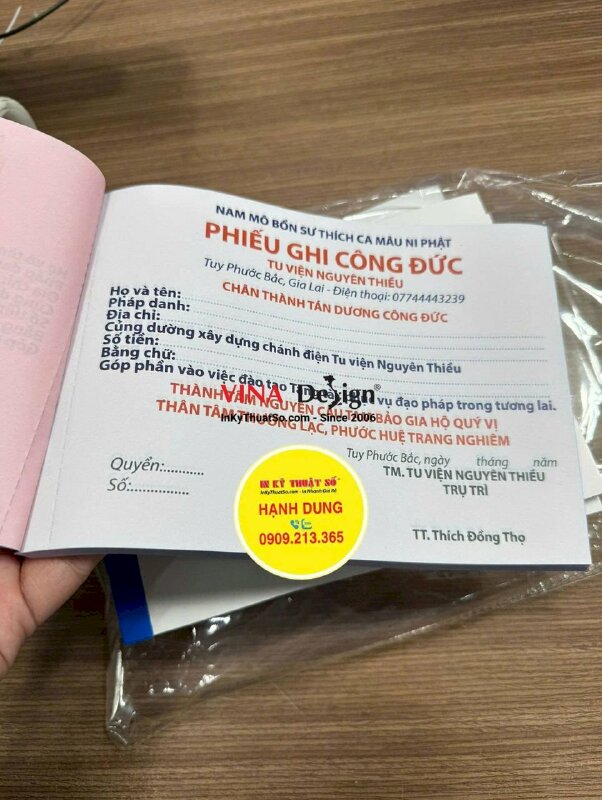 NAM MÔ BỔN SƯ THÍCH CA MÂU NI PHẬT
PHIẾU GHI CÔNG ĐỨC
TU VIỆN NGUYÊN THIỀU
Tuy Phước Bắc, Gia Lai - Điện thoại: 07744443239
CHÂN THÀNH TÁN DƯƠNG CÔNG ĐỨC
Họ và tên:
Pháp danh:
Địa chỉ:
Cúng dường xây dựng chánh điện Tu viện Nguyên Thiều
Số tiền:
Bằng chữ:
Góp phần vào việc đào tạo Tăng vụ đạo pháp trong tương lai.
VINA Design®
InKyThuatSo.com - Since 2006
THÀNH TÂM NGUYỆN CẦU TAM BẢO GIA HỘ QUÝ VỊ
THÂN TÂM THƯỜNG LẠC, PHƯỚC HUỆ TRANG NGHIÊM
Tuy Phước Bắc, ngày tháng năm
Quyển:...........
TM. TU VIỆN NGUYÊN THIỀU
Số:................
TRỤ TRÌ
TT. Thích Đồng Thọ
IN KỸ THUẬT SỐ
InKyThuatSo.com - In Nhanh Giá Rẻ
HẠNH DUNG
0909.213.365